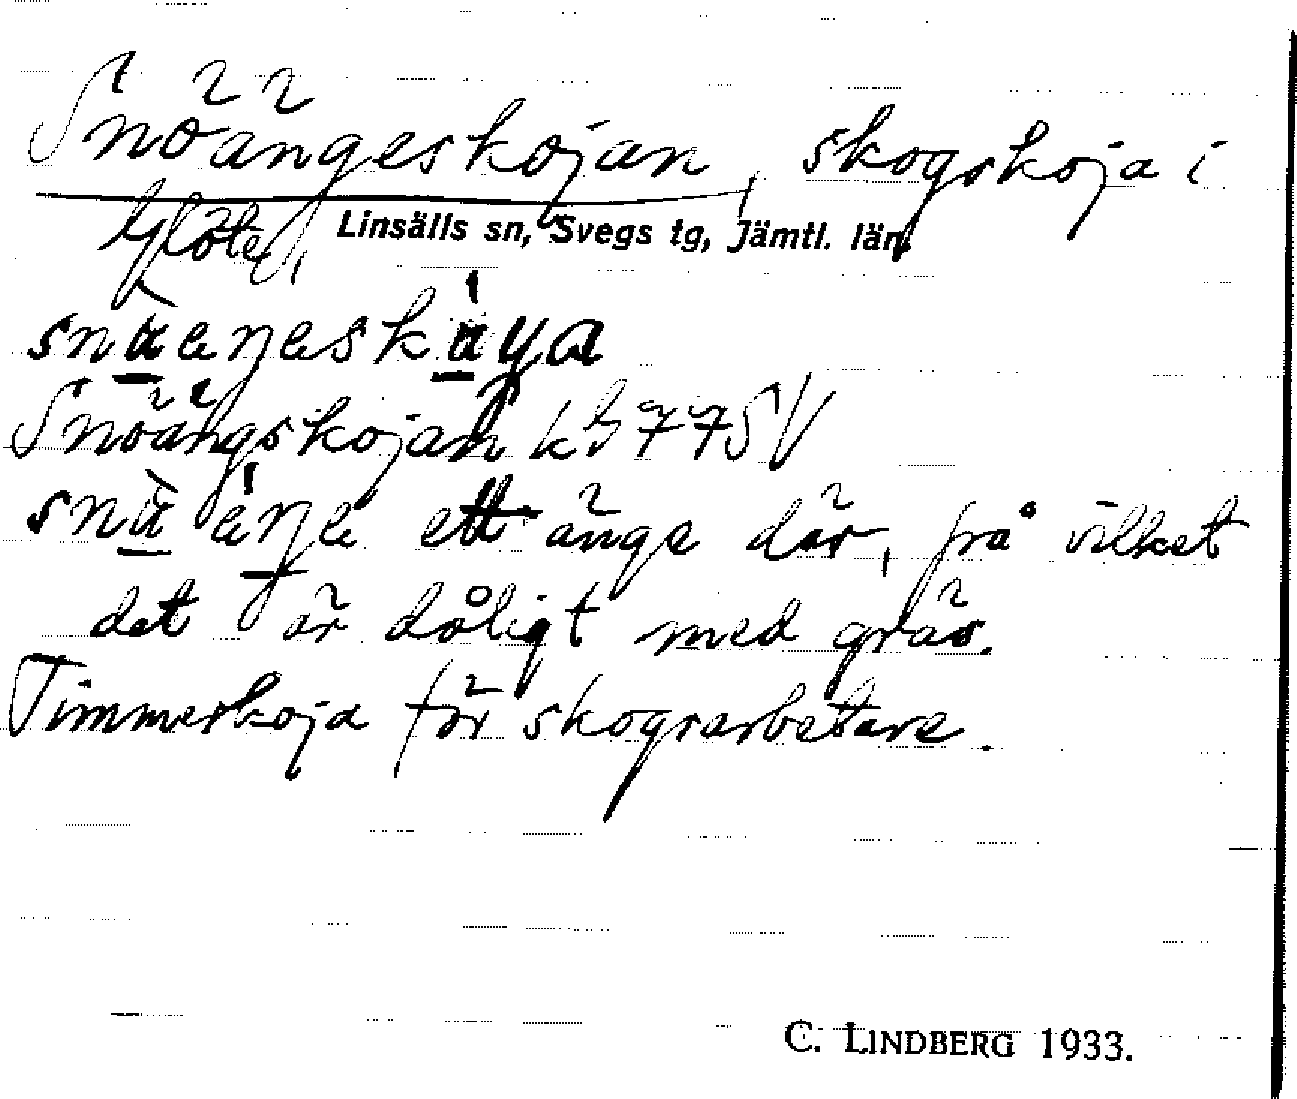 Snöängeskojan, skogskoja i
Glöte, Linsälls sn, Svegs tg, Jämtl. län.
snàeŋeskáya
Snöängskojan kb 77 SV
snà éŋe ett änge där, från vilket
det är dåligt med gräs.
Timmerkoja för skogsarbetare.
C. LINDBERG 1933.